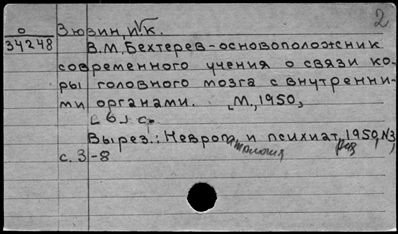 2
о Зюзин, И.К.
34248 В.М. Бехтерев - основоположник
современного учения о связи ко-
ры головного мозга с внутренни-
ми органами. [М., 1950]
[6] с.
Вырез.: Невропатология и психиат., 1950, №3,
с. 3-8